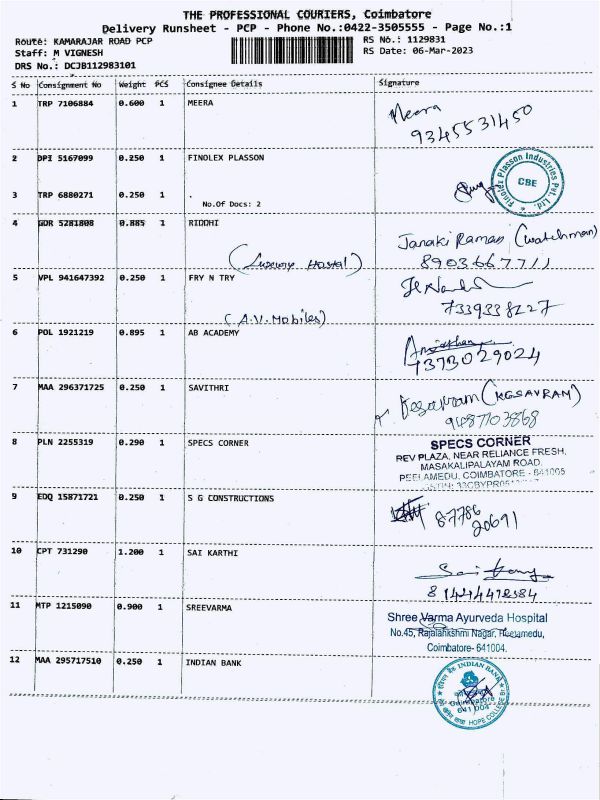 THE PROFESSIONAL COURIERS, Coimbatore
Delivery Runsheet - PCP - Phone No.:0422-3505555 - Page No.:1
Route: KAMARAJAR ROAD PCP
RS No.: 1129831
Staff: M VIGNESH
RS Date: 06-Mar-2023
DRS No.: DCJB112983101
S No Consignment No Weight PCS Consignee Details Signature
1 TRP 7106884 0.600 1 MEERA
Meera
9345531450
2 DPI 5167099 0.250 1 FINOLEX PLASSON
Finolex Plasson Industries Pvt. Ltd.
CBE
3 TRP 6880271 0.250 1 .
No.Of Docs: 2
4 GDR 5281808 0.885 1 RIDDHI
Janaki Raman (Watchman)
8903667711
(Luxury Hostal)
5 VPL 941647392 0.250 1 FRY N TRY
7339338227
(A.V. Mobiles)
6 POL 1921219 0.895 1 AB ACADEMY
7373029024
7 MAA 296371725 0.250 1 SAVITHRI
Kesavram (KESAVRAM)
8 PLN 2255319 0.290 1 SPECS CORNER
SPECS CORNER
REV PLAZA, NEAR RELIANCE FRESH,
MASAKALIPALAYAM ROAD,
PEELAMEDU, COIMBATORE - 641005
9 EDQ 15871721 0.250 1 S G CONSTRUCTIONS
87786
20691
10 CPT 731290 1.200 1 SAI KARTHI
11 MTP 1215090 0.900 1 SREEVARMA
Shree Varma Ayurveda Hospital
No.45, Rajalahkshmi Nagar, Peelamedu,
Coimbatore- 641004.
12 MAA 295717510 0.250 1 INDIAN BANK
INDIAN BANK
Coimbatore
641 004
HOPE COLLEGE